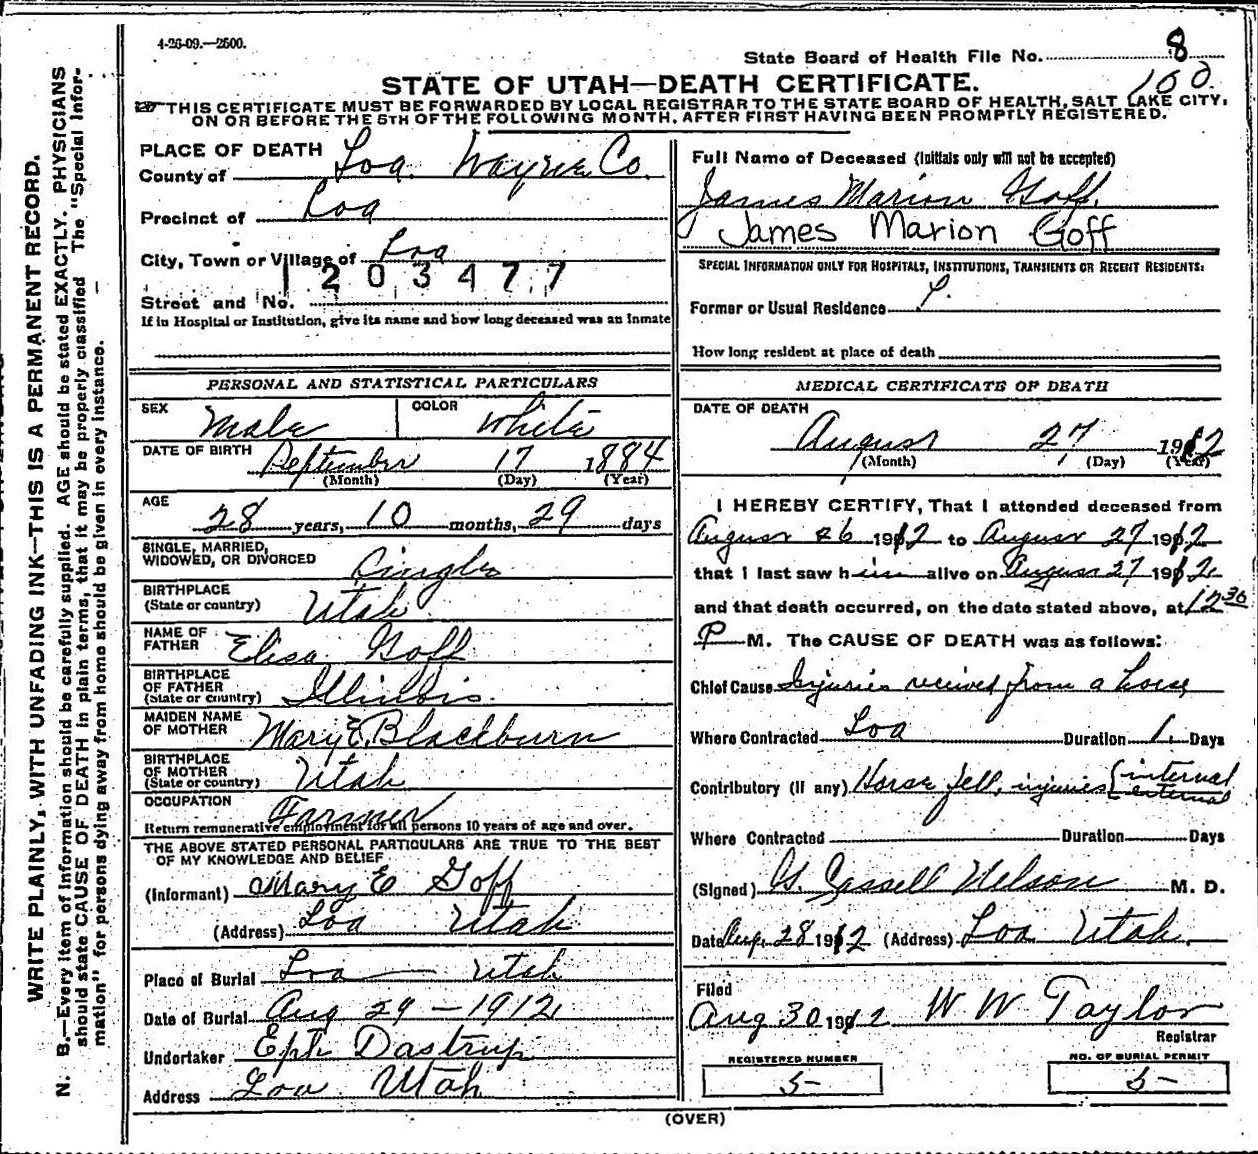 4-26-09.—2500.
State Board of Health File No. 8
100
STATE OF UTAH—DEATH CERTIFICATE.
THIS CERTIFICATE MUST BE FORWARDED BY LOCAL REGISTRAR TO THE STATE BOARD OF HEALTH, SALT LAKE CITY,
ON OR BEFORE THE 5TH OF THE FOLLOWING MONTH, AFTER FIRST HAVING BEEN PROMPTLY REGISTERED.
WRITE PLAINLY, WITH UNFADING INK—THIS IS A PERMANENT RECORD.
N. B.—Every item of information should be carefully supplied. AGE should be stated EXACTLY. PHYSICIANS
should state CAUSE OF DEATH in plain terms, that it may be properly classified. The "Special Infor-
mation" for persons dying away from home should be given in every instance.
PLACE OF DEATH
County of Loa. Wayne Co.
Precinct of Loa
City, Town or Village of Loa
1203477
Street and No.
If in Hospital or Institution, give its name and how long deceased was an inmate
PERSONAL AND STATISTICAL PARTICULARS
SEX Male COLOR White
DATE OF BIRTH September 17 1884
(Month) (Day) (Year)
AGE
28 years, 10 months, 29 days
SINGLE, MARRIED,
WIDOWED, OR DIVORCED Single
BIRTHPLACE
(State or country) Utah
NAME OF
FATHER Elisa Goff
BIRTHPLACE
OF FATHER
(State or country) Illinois
MAIDEN NAME
OF MOTHER Mary E. Blackburn
BIRTHPLACE
OF MOTHER
(State or country) Utah
OCCUPATION Farmer
Return remunerative employment for all persons 10 years of age and over.
THE ABOVE STATED PERSONAL PARTICULARS ARE TRUE TO THE BEST
OF MY KNOWLEDGE AND BELIEF
(Informant) Mary E Goff
(Address) Loa Utah
Place of Burial Loa Utah
Date of Burial Aug 29 - 1912
Undertaker Eph Dastrup
Address Loa Utah
Full Name of Deceased (Initials only will not be accepted)
James Marion Goff.
James Marion Goff
SPECIAL INFORMATION ONLY FOR HOSPITALS, INSTITUTIONS, TRANSIENTS OR RECENT RESIDENTS:
Former or Usual Residence
How long resident at place of death
MEDICAL CERTIFICATE OF DEATH
DATE OF DEATH
August 27 1912
(Month) (Day) (Year)
I HEREBY CERTIFY, That I attended deceased from
August 26 1912 to August 27 1912
that I last saw him alive on August 27 1912
and that death occurred, on the date stated above, at 12 30
P M. The CAUSE OF DEATH was as follows:
Chief Cause Injuries recived from a horse
Where Contracted Loa Duration 1 Days
Contributory (if any) Horse fell, injuries { internal
external
Where Contracted Duration Days
(Signed) G. Cassell Nelson M. D.
Date Aug. 28 1912 (Address) Loa Utah.
Filed
Aug 30 1912 W W Taylor
Registrar
REGISTERED NUMBER
5-
NO. OF BURIAL PERMIT
5-
(OVER)